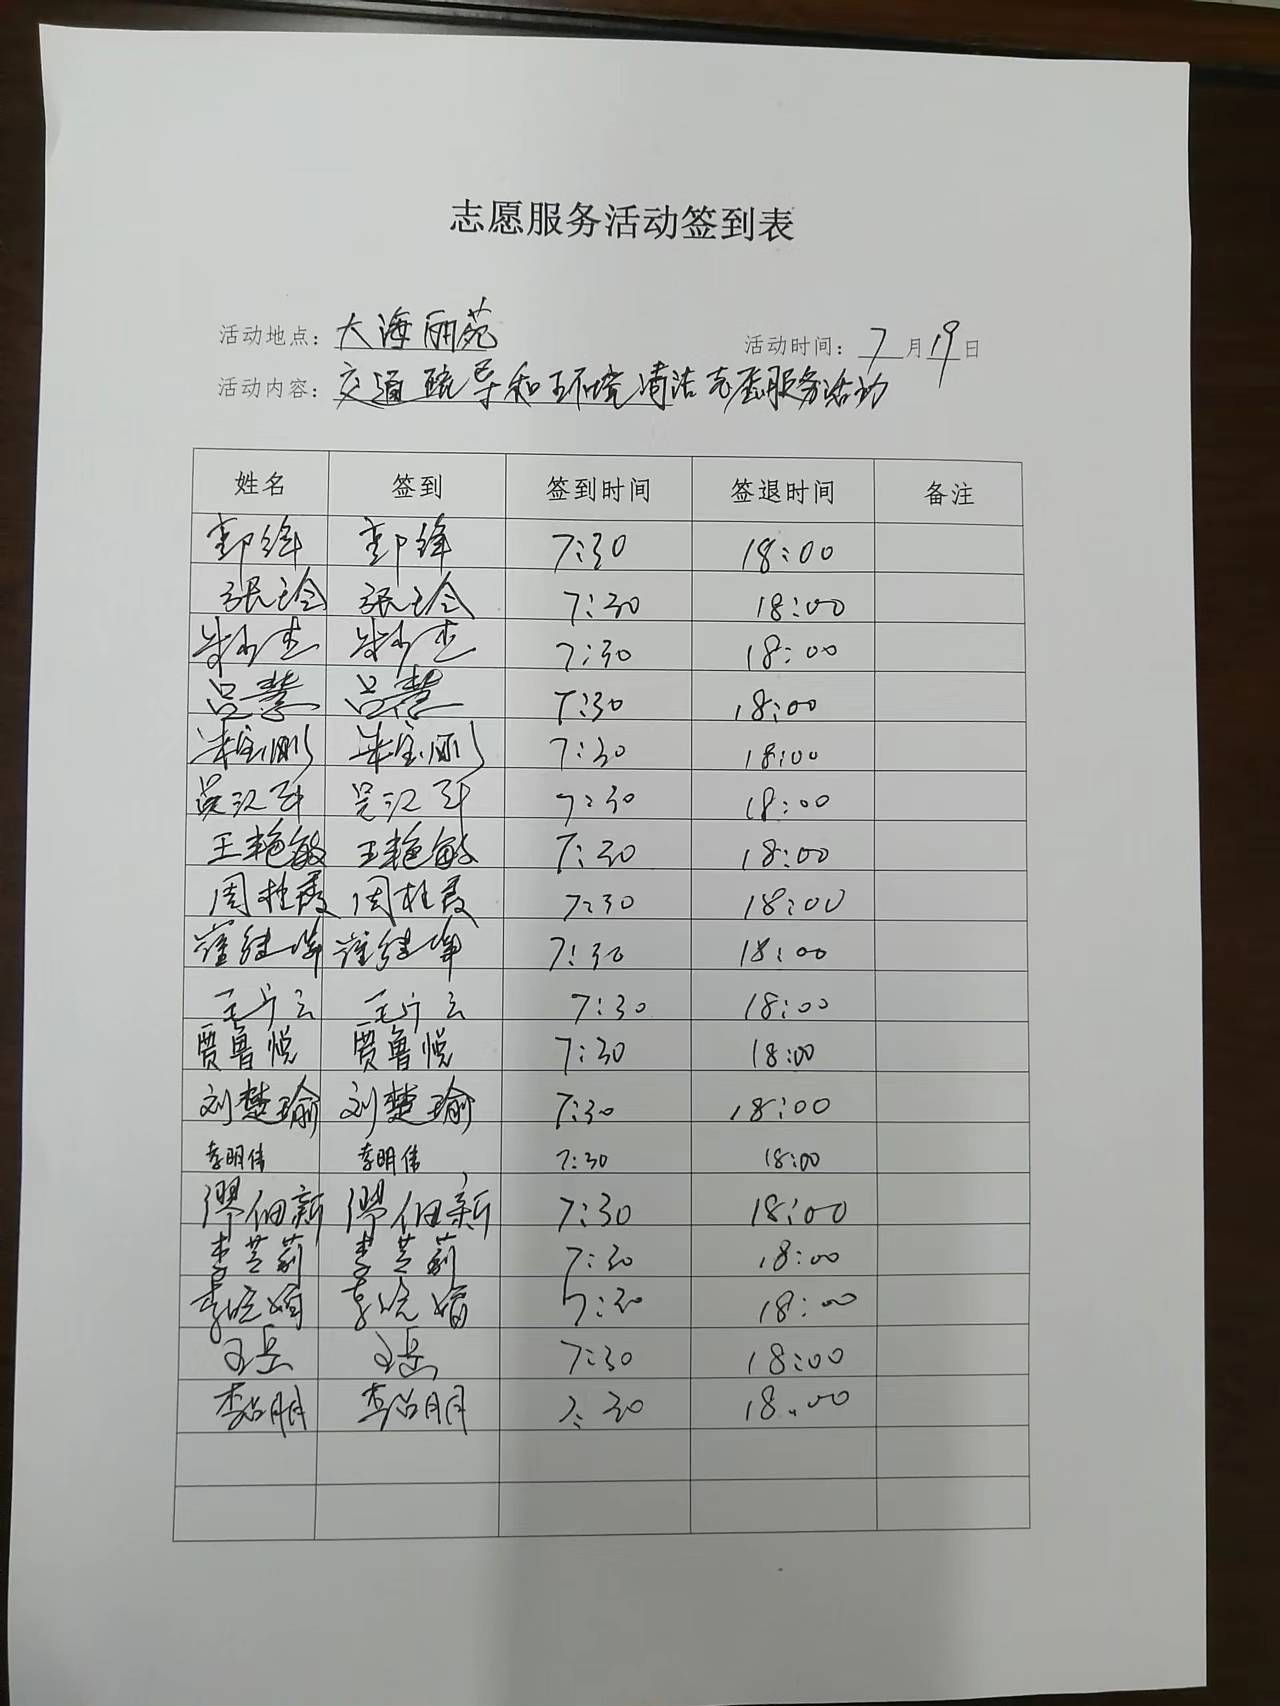 志愿服务活动签到表
活动地点：大海丽苑 活动时间：7月19日
活动内容：交通疏导和环境清洁志愿服务活动
姓名 签到 签到时间 签退时间 备注
7:30 18:00
张玲 张玲 7:30 18:00
7:30 18:00
吕慧 吕慧 7:30 18:00
7:30 18:00
吴江 吴江 7:30 18:00
王艳敏 王艳敏 7:30 18:00
周桂霞 周桂霞 7:30 18:00
7:30 18:00
7:30 18:00
贾鲁悦 贾鲁悦 7:30 18:00
刘楚瑜 刘楚瑜 7:30 18:00
李明伟 李明伟 7:30 18:00
缪佃新 缪佃新 7:30 18:00
李芝莉 李芝莉 7:30 18:00
李晓娟 李晓娟 7:30 18:00
王岳 王岳 7:30 18:00
李明 李明 7:30 18:00